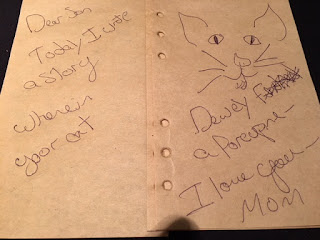 Dear Son
Today I wrote
a story
wherein
your cat
Dewey
a Porcupine –
I love you –
Mom